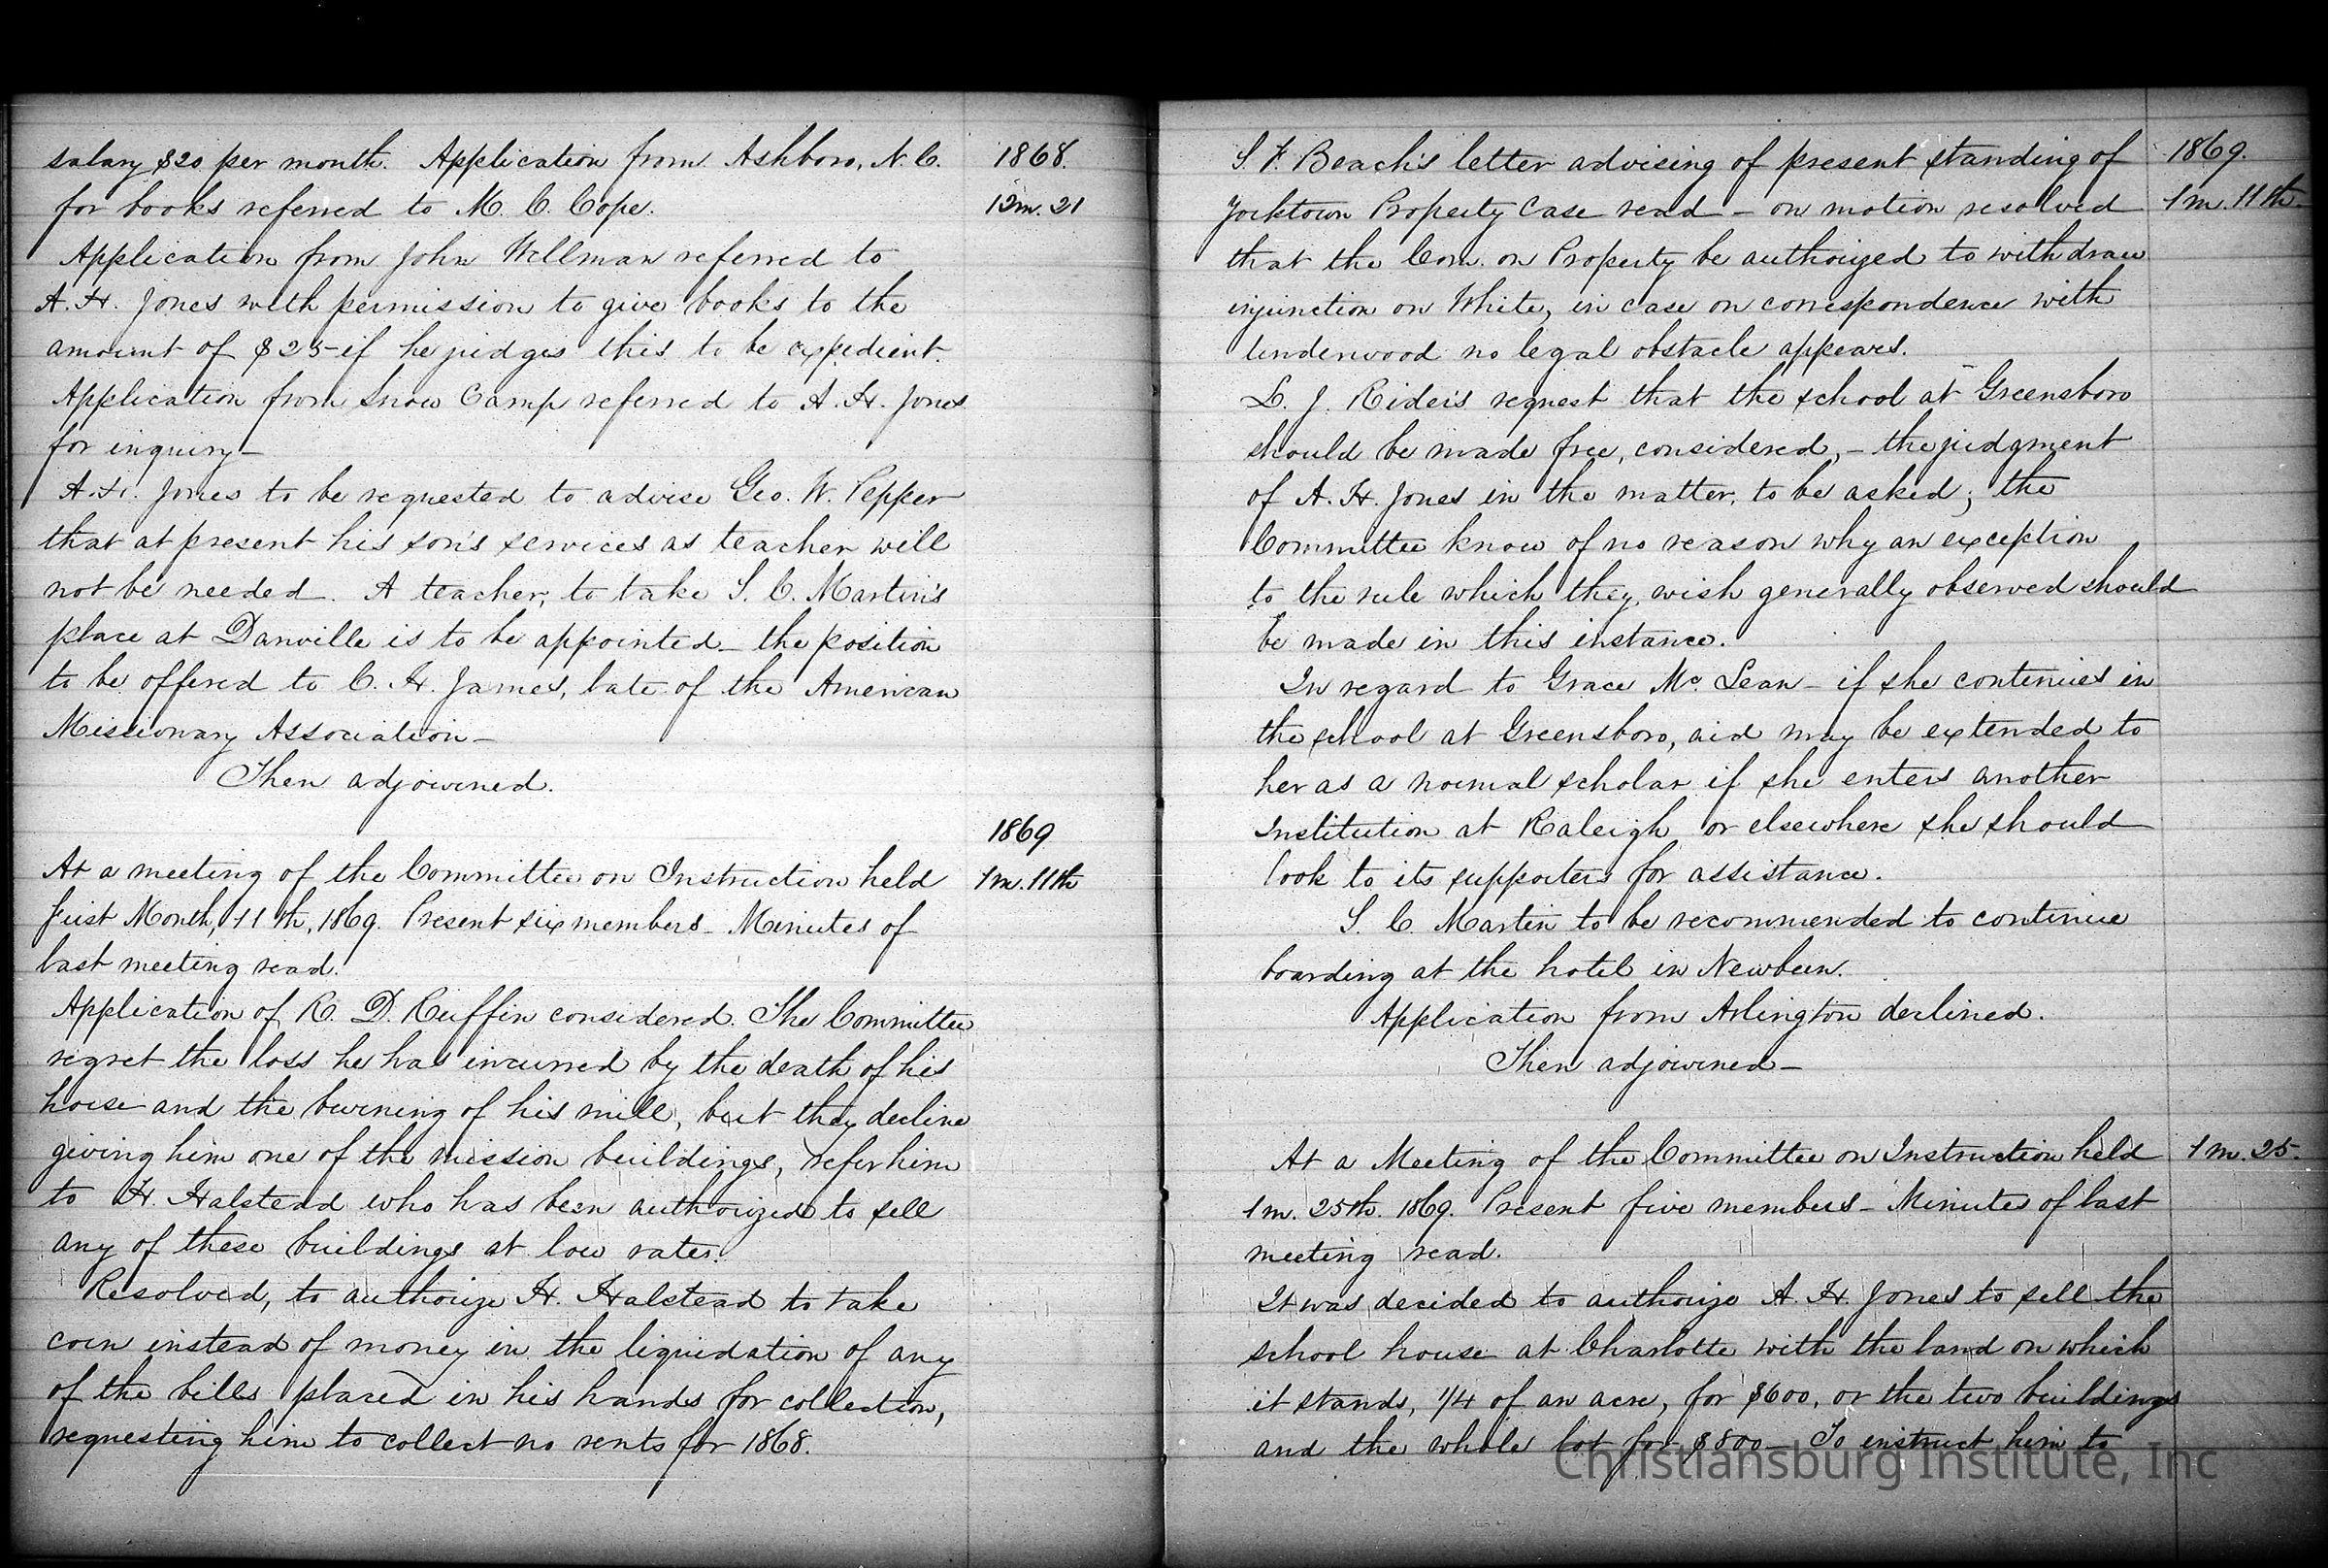 salary $20 per month. Application from Ashboro, N.C.
1868.
for books referred to M. C. Cope.
12m. 21
Application from John Wellman referred to
A. H. Jones with permission to give books to the
amount of $25 - if he judges this to be expedient.
Application from Snow Camp referred to A. H. Jones
for inquiry -
A. H. Jones to be requested to advise Geo. W. Pepper
that at present his son's services as teacher will
not be needed. A teacher, to take S. C. Martin's
place at Danville is to be appointed - the position
to be offered to C. H. James, late of the American
Missionary Association -
Then adjourned.
1869
At a meeting of the Committee on Instruction held
1m. 11th
first Month, 11th, 1869. Present six members - Minutes of
last meeting read.
Application of R. D. Ruffin considered. The Committee
regret the loss he has incurred by the death of his
horse and the burning of his mill, but they decline
giving him one of the mission buildings, refer him
to H. Halstead who has been authorized to sell
any of these buildings at low rates.
Resolved, to authorize H. Halstead to take
corn instead of money in the liquidation of any
of the bills placed in his hands for collection,
requesting him to collect no rents for 1868.
S. F. Beach's letter advising of present standing of
1869.
Yorktown Property Case read - on motion resolved
1m. 11th.
that the Com. on Property be authorized to withdraw
injunction on White, in case on correspondence with
Underwood no legal obstacle appears.
L. J. Rider's request that the school at Greensboro
should be made free, considered, - the judgment
of A. H. Jones in the matter, to be asked; the
Committee know of no reason why an exception
to the rule which they wish generally observed should
be made in this instance.
In regard to Grace Mc. Lean - if she continues in
the school at Greensboro, aid may be extended to
her as a normal scholar if she enters another
Institution at Raleigh or elsewhere she should
look to its supporters for assistance.
S. C. Martin to be recommended to continue
boarding at the hotel in Newbern.
Application from Arlington declined.
Then adjourned -
At a Meeting of the Committee on Instruction held
1m. 25.
1m. 25th. 1869. Present five members - Minutes of last
meeting read.
It was decided to authorize A. H. Jones to sell the
school house at Charlotte with the land on which
it stands, 1/4 of an acre, for $600, or the two buildings
and the whole lot for $800 - To instruct him to
Christiansburg Institute, Inc